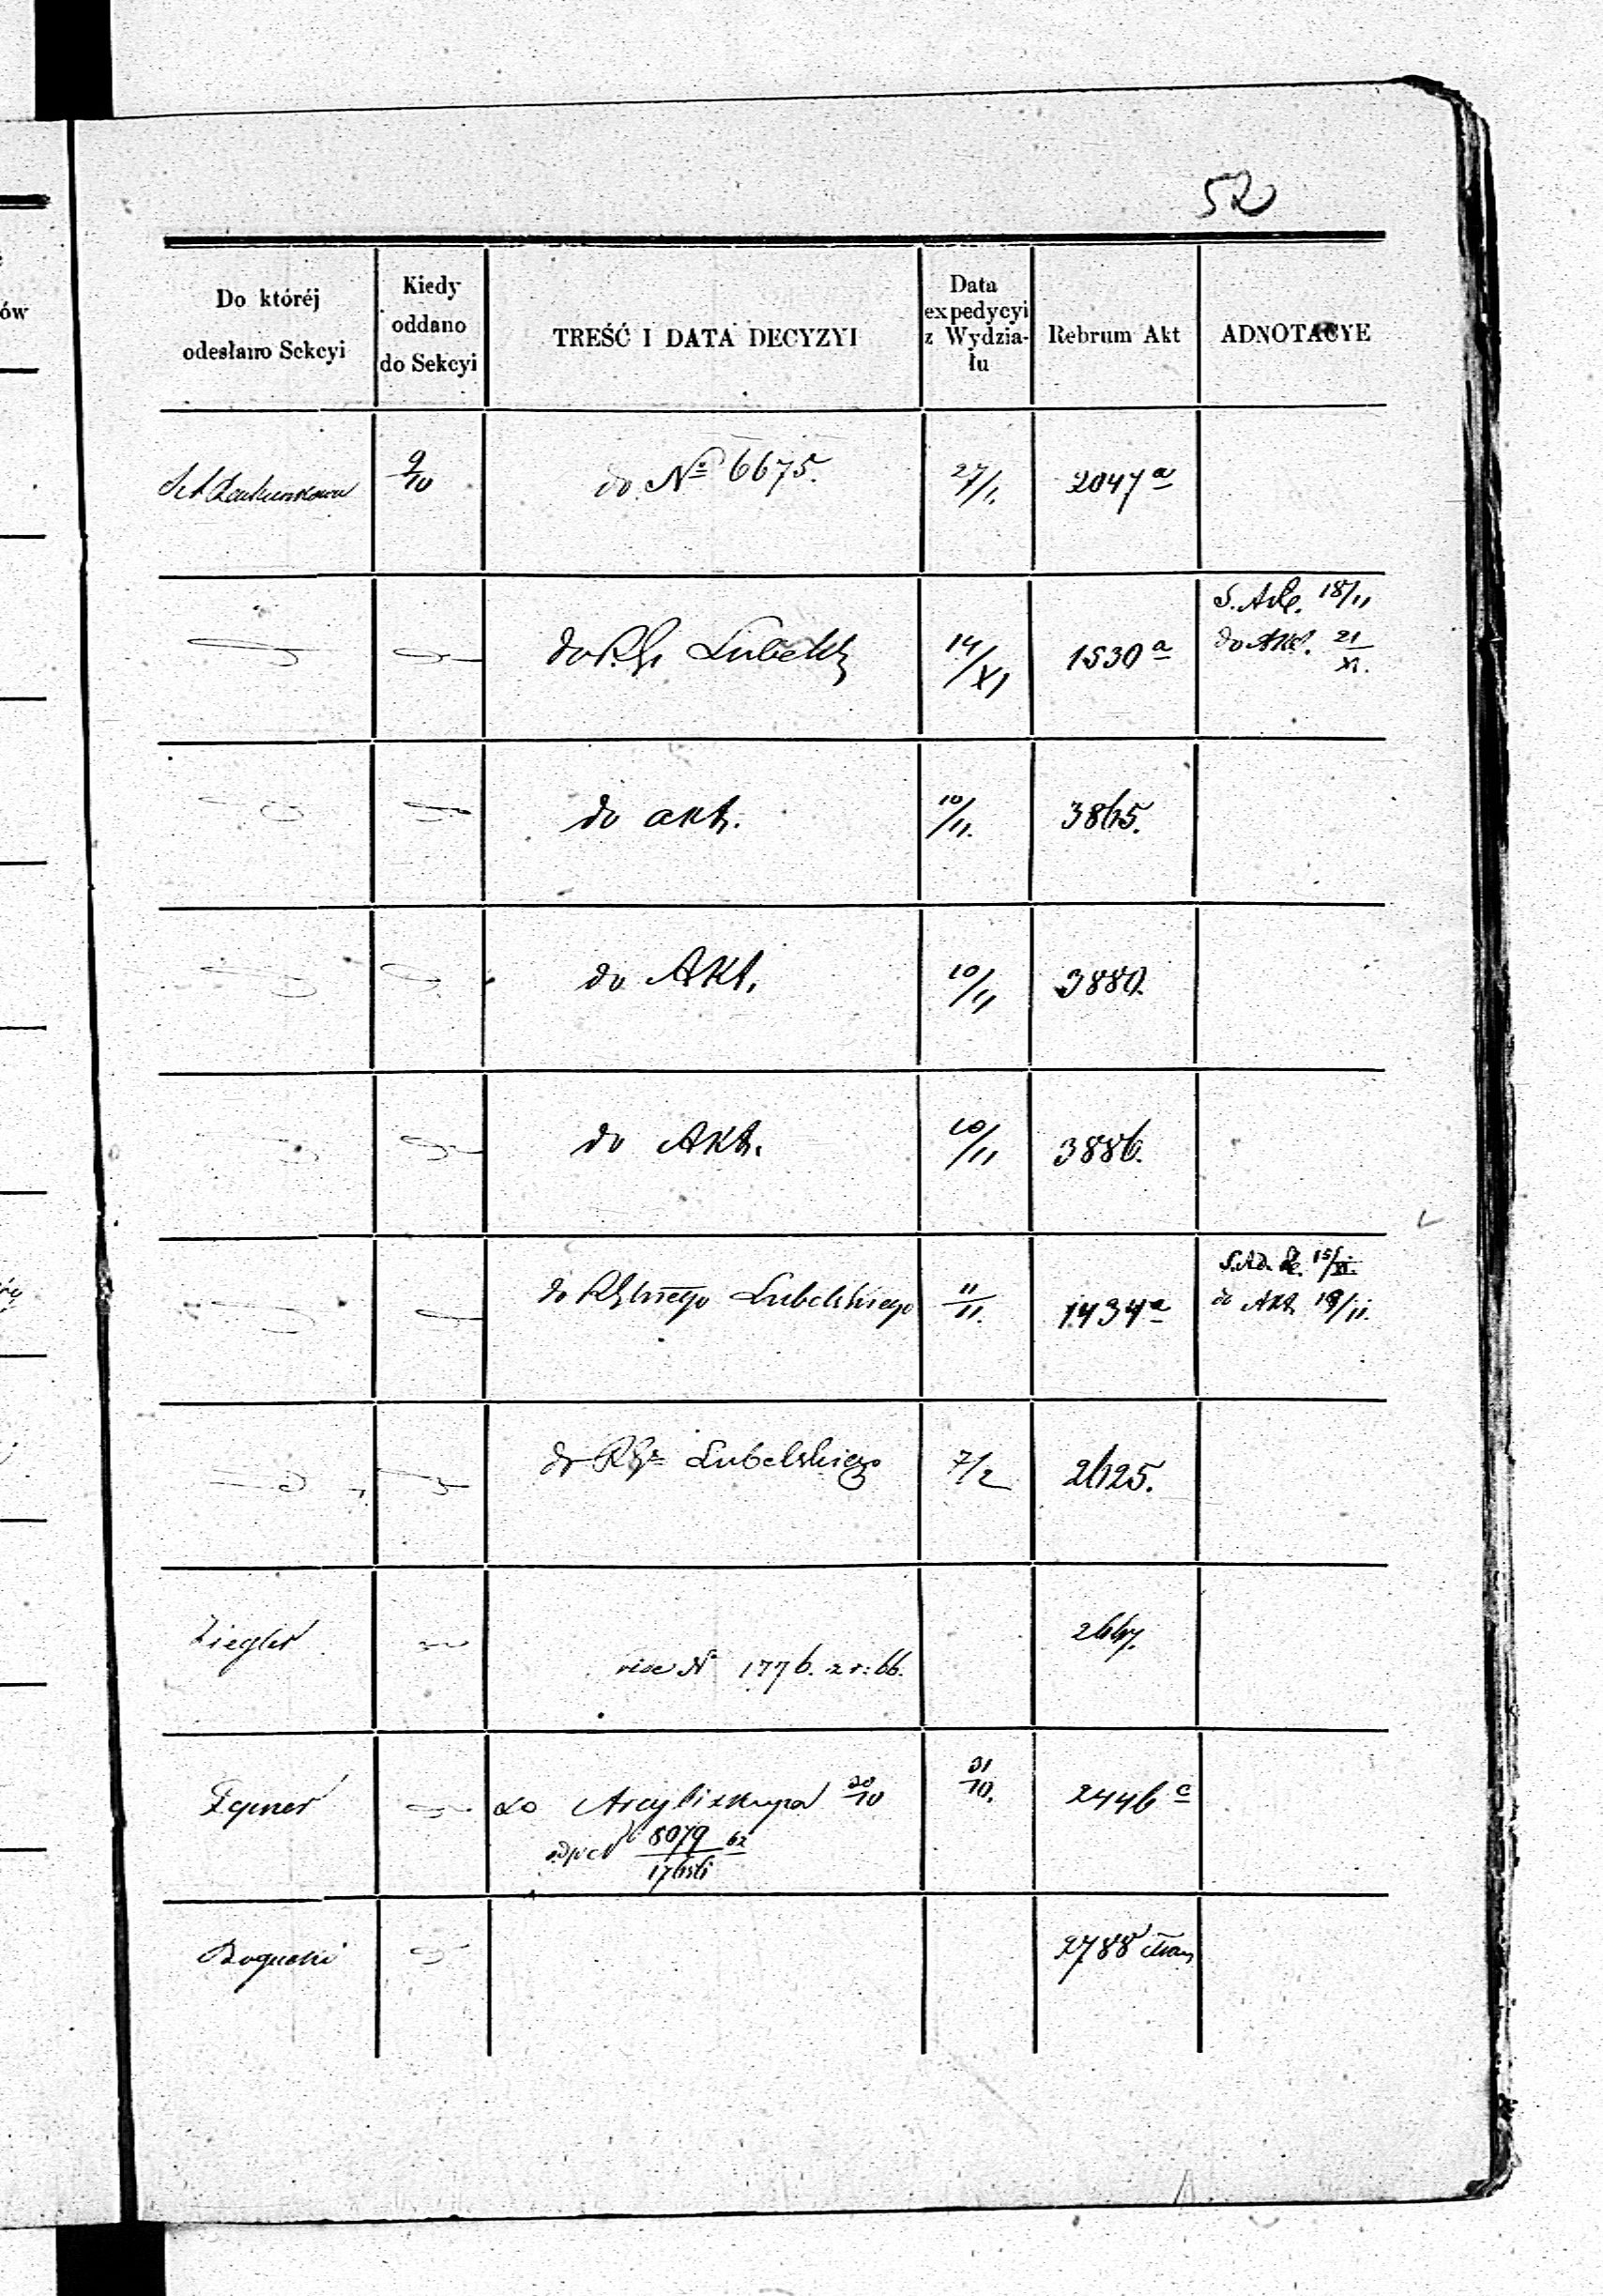 52
Do któréj
odesłano Sekcyi
Kiedy
oddano
do Sekcyi
TREŚĆ I DATA DECYZYI
Data
expedycyi
z Wydzia-
łu
Rebrum Akt
ADNOTACYE
9/10 do № 6675. 27/1. 2047 a
do Lubelsk 14/XI 1530 a
18/11
do Akt. 21/XI.
do akt. 10/11. 3865.
do Akt. 10/11 3880.
do Akt. 10/11 3886.
do Lubelskiego 11/11. 1434 a
15/XI.
do Akt 19/11.
do Lubelskiego 7/2 2625.
Ziegler 2667.
vide N 1776. z r: 66.
do Arcybiskupa 30/10 31/10. 2446 c
Bogucki 2788